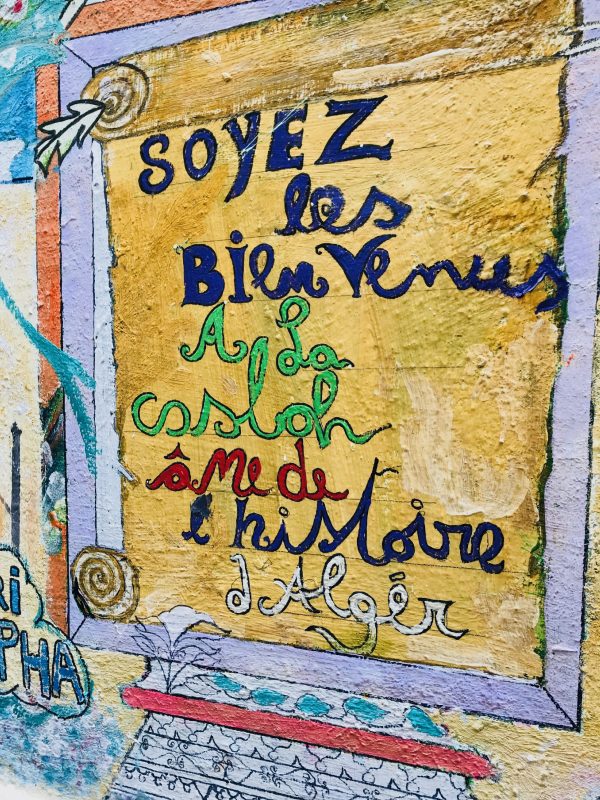 SOYEZ
les
BienVenues
A La
casbah
âme de
l'histoire
d'Algér
RI
PHA